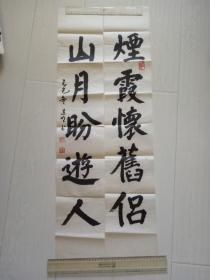 煙霞懷舊侶
山月盼遊人